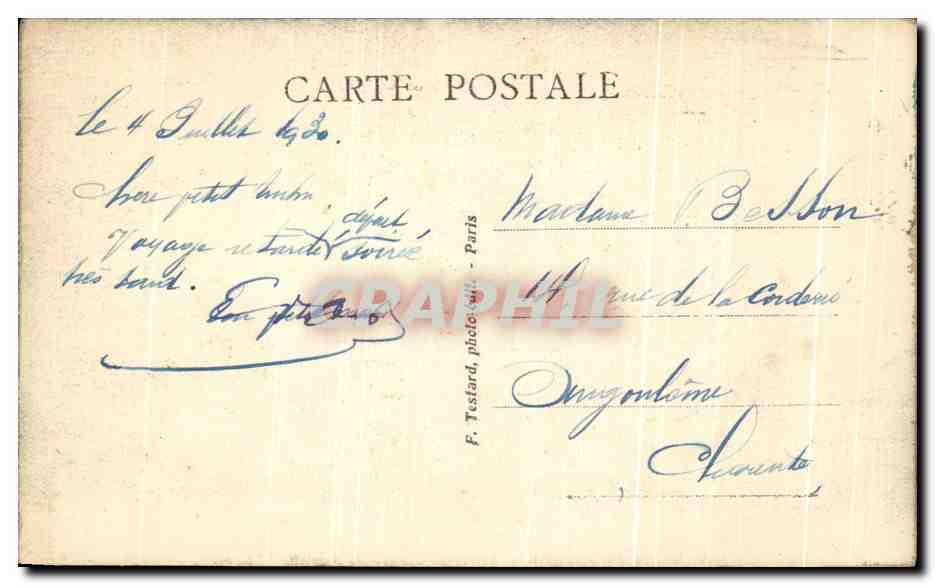 CARTE POSTALE
le 4 Juillet 1930.
Chère petit
Voyage retardé départ soirée
très tard.
Ton petit
F. Testard, photo-édit. - Paris
Madame Besson
rue de la Corderie
Angoulême
Charente
GRAPHIL